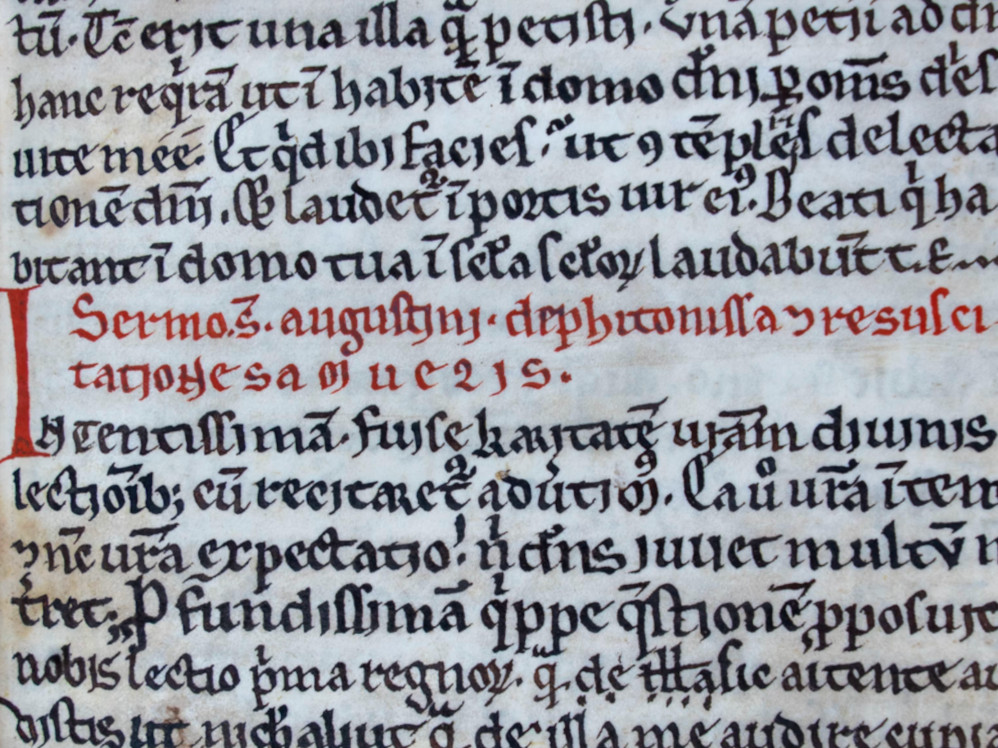 tū. Tc̄ erit una illa quā petisti. Vnā petii a dn̄
hanc reqͥrā ut ī habitē ī domo dn̄i ꝑ om̄s dies
uite meę. Et qͥd ibi facies. ut ꝯtēpler delecta
tionē dn̄i. Et laudet᷑ ī portis uir eiꝰ. Beati qͥ ha
bitant ī domo tua ī scl̄a scl̄oꝝ laudabūt t. &
Sermo. s̄. augustini. de phitonissa ⁊ resusci
tatione samuelis.
Intentissimā. fuise karitatē urām diuinis
lectioīb; cū recitaret᷑ aduͥtimꝰ.
⁊ nē urā expectatio. nͥ dn̄s iuuet multū
tͥret. Ꝓfundissimā qͥppe q̄stionē ꝓposuit
nobis lectio pͥma regnoꝝ. qͥ de illa sic attente